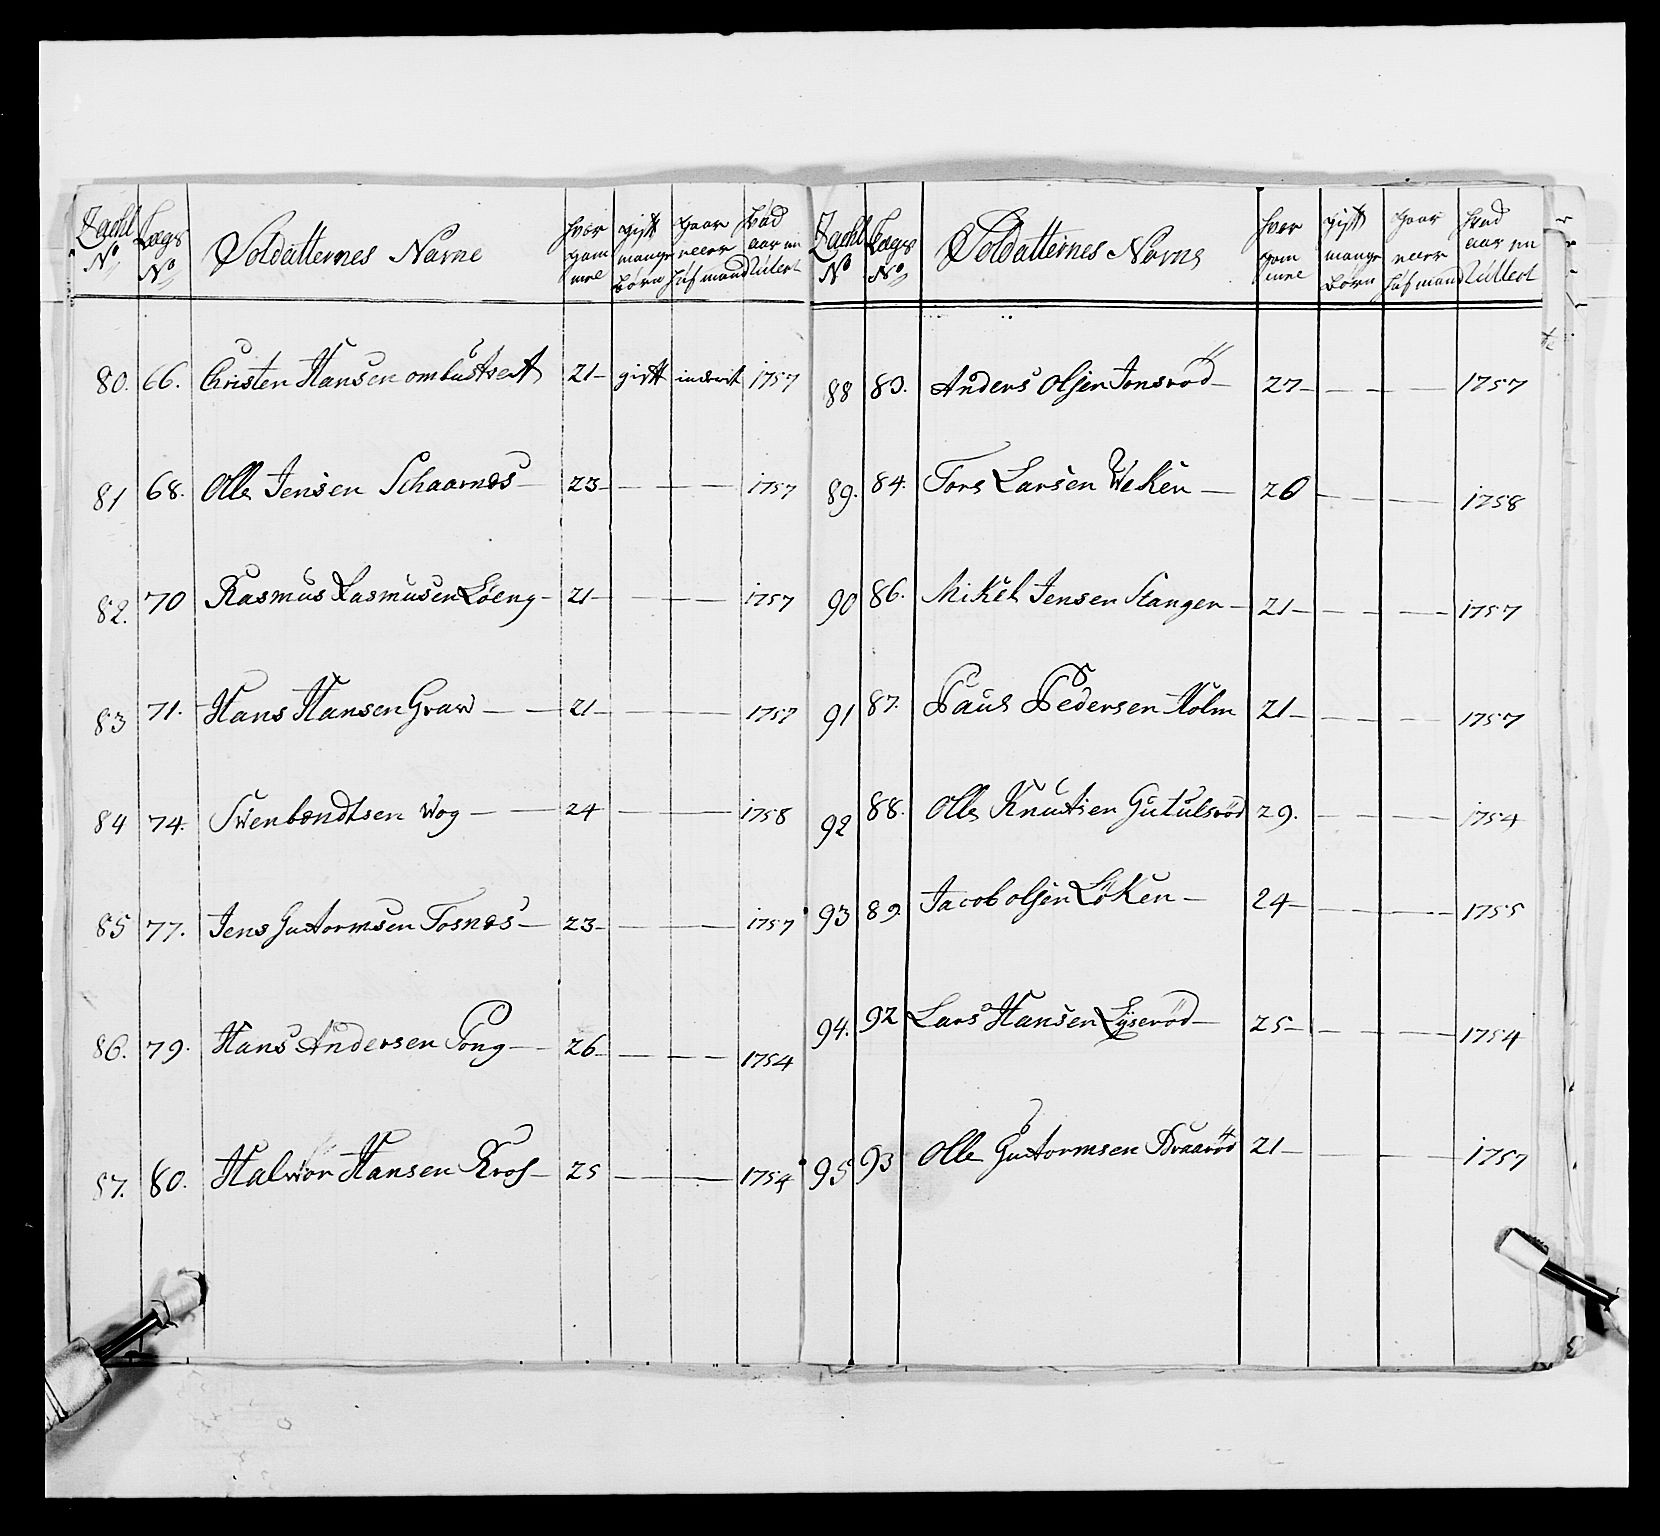 Zachl Legs Soldatternes Navne hvor gift hvad
No No gam mange aar en
mel børn hus mand
80. 66. Christen Hansen ombustvet 21 gift inderst 1757
81 68. Olle Jensen Schaarnes 23 1757
82. 70 Rasmus Rasmusen Löeng 21 1757
83 71. Hans Hansen Graw 21 1757
84 74. Swenbendtsen Wog 24 1758
85 77. Jens Guttormsen Tosnes 23 1757
86. 79. Hans Andersen Tong 26 1754
87. 80. Halvor Hansen Kros 25 1754
Zachl Legs Soldatternes Navne hvor gift hvad
No No gam mange aar en
mel børn hus mand
88 83. Anders Olsen Jonsröd 27 1757
89. 84. Tors Larsen Weken 26 1758
90 86. Mikel Jensen Stangen 21 1757
91 87. Paul Pedersen Holm 21 1757
92 88. Olle Knutsen Gutulsröd 29. 1754
93 89 Jacob olsen Löken 24 1755
94. 92 Lars Hansen Lyseröd 25 1754
95 93 Olle Guttormsen Braaröd 21 1757